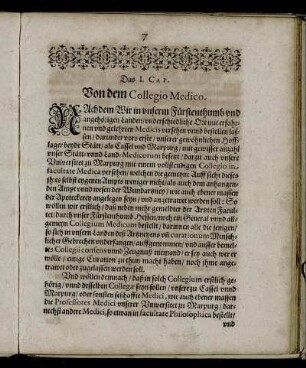 7
Das I. CAP.
Von dem Collegio Medico.
NAchdem Wir in unserm Fürstenthumb und
angehörigen Landen / unterschiedliche Orten erfahr-
nen und gelehrten Medicis versehen unnd bestellen las-
sen / darunder vors erste / unserer gewöhnlichen Hoff-
läger beyde Stätt / als Cassel und Marpurg / mit gewisser anzahl
unser Stätt- unnd Land-Medicorum bestelt / darzu auch unsere
Universitet zu Marpurg mit einem vollständigen Collegio in
facultate Medica versehen / welchen die gemeine Auffsicht dieses
ihres selbst eigenen Ampts weniger nicht / als auch dem anhangen-
den Ampt unnd wesen der Wundärtzney / wie auch ebener massen
der Apotecken angelegen seyn / und an vertrawet werden soll: So
wollen wir erstlich / daß neben mehr gemelter der Ärtzten Facul-
tet / durch unser Fürstenthumb Hessen, noch ein General unnd all-
gemeyn Collegium Medicum bestellt / darinnen alle die jenigen
so sich in unsern Landen deß Artzneiens unnd curationum Mensch-
licher Gebrechen underfangen / auffgenommen / und ausser dersel-
ben Collegii consens unnd Zeugnuß niemand / er sey auch wer er
wölle / einige Curation zu thun macht haben / noch ihme ange-
trawet oder zugelassen werden soll.
Und wöllen demnach / daß in solch Collegium erstlich ge-
hörig / unnd desselben Collegæ seyn sollen / unsere zu Cassel unnd
Marpurg / oder sonsten seßhaffte Medici, wie auch ebener massen
die Professores Medici unserer Universitet zu Marpurg / dem-
nechst andere Medici, so etwan in facultate Philosophica bestellt /
und